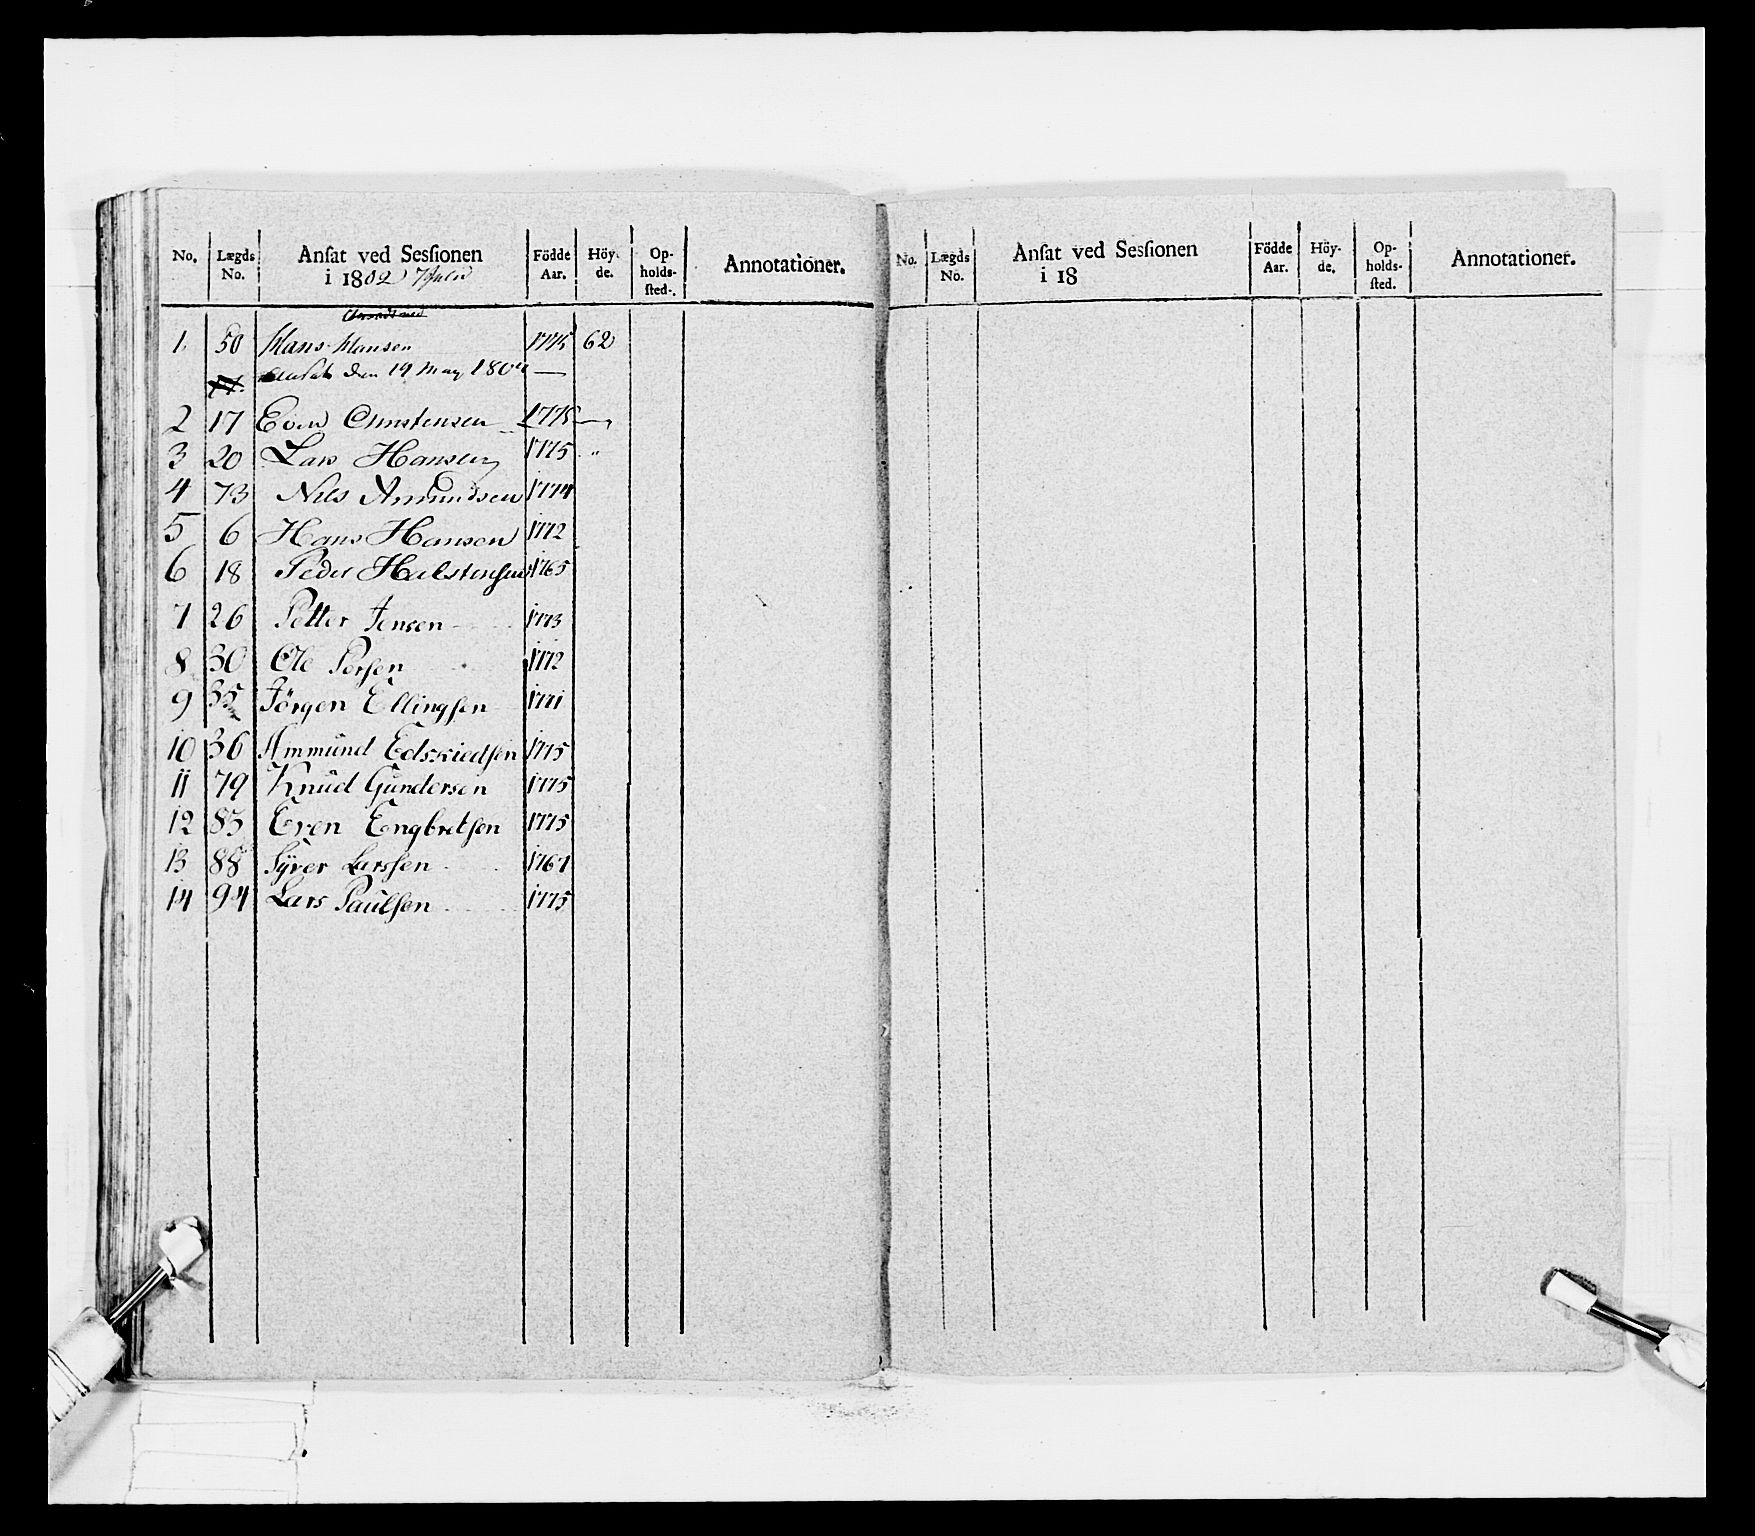 No. Lægds No. Ansat ved Sessionen i 1802 7 Julii Födde Aar. Höy- de. Op- holds- sted. Annotationer.
1 50 Hans Hansen 1775 62
Ansat den 19 May 180
2 17 Even Christensen 1775
3 20 Lars Hansen 1775 "
4 73 Nils Amundsen 1774
5 6 Hans Hansen 1772
6 18 Peder Halstensen 1765
7 26 Petter Jensen 1773
8 30 Ole Persen 1772
9 35 Jörgen Ellingsen 1771
10 36 Ammund 1775
11 79 Knud Gundersen 1775
12 85 Even Engbretsen 1775
13 88 Syver Larssen 1767
14 94 Lars Paulsen 1775
No. Lægds No. Ansat ved Sessionen i 18 Födde Aar. Höy- de. Op- holds- sted. Annotationer.